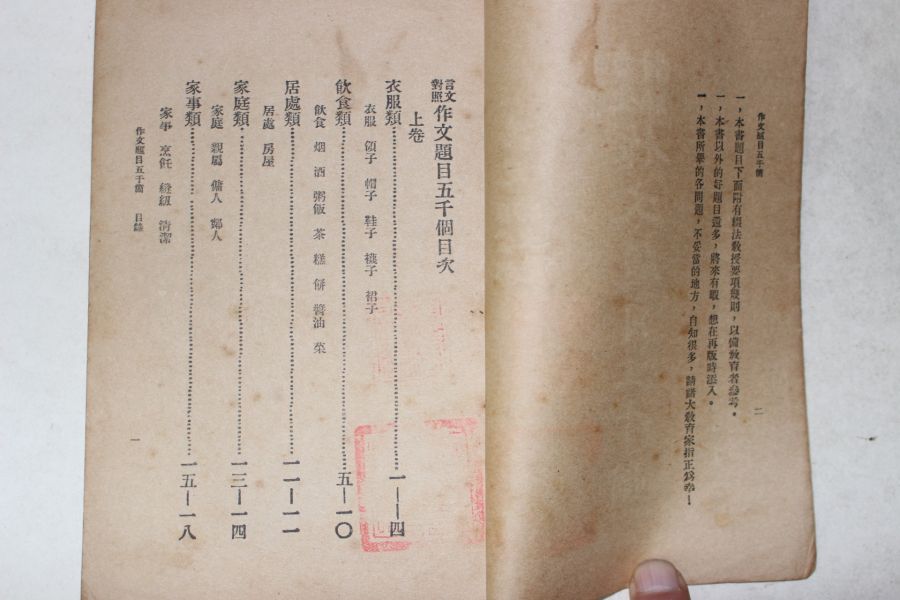 作文題目五千個
一，本書題目下面附有綴法敎授要項幾則，以備敎育者參考。
一，本書以外的好題目還多，將來有暇，想在再版時添入。
一，本書所舉的各問題，不妥當的地方，自知很多，請諸大敎育家指正爲幸！
二
言文對照 作文題目五千個目次
上卷
衣服類……一—四
衣服 領子 帽子 鞋子 襪子 裙子
飮食類……五—一〇
飮食 烟 酒 粥飯 茶 糕 餅 醬油 菜
居處類……一一—一二
居處 房屋
家庭類……一三—一四
家庭 親屬 傭人 鄰人
家事類……一五—一八
家事 烹飪 縫紉 淸潔
作文題目五千個 目錄
一